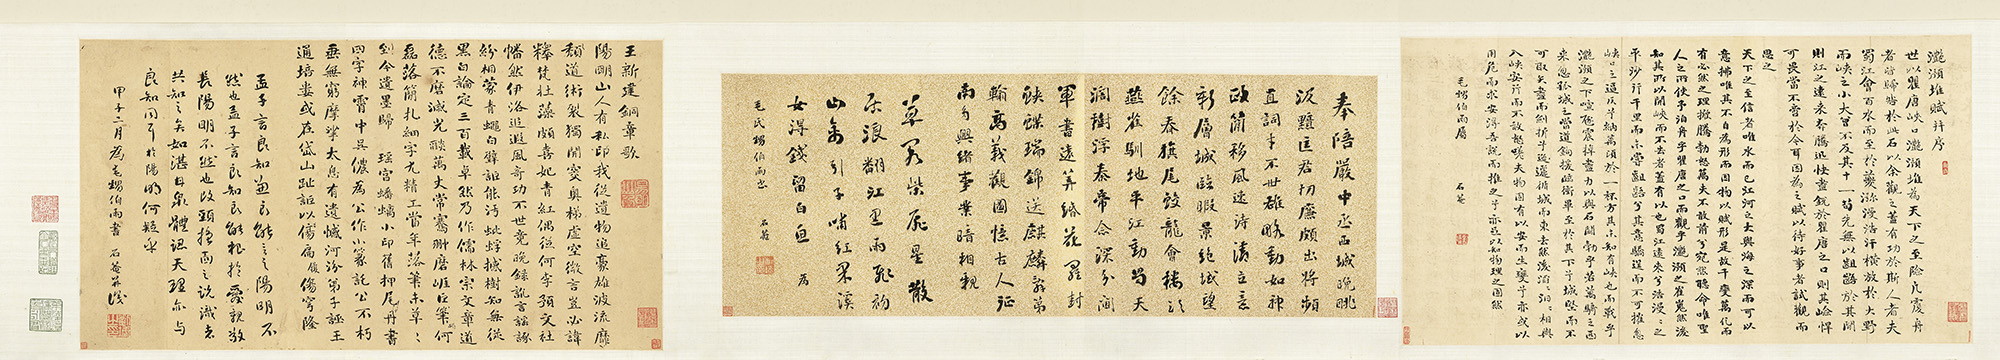 灩澦堆賦并序
世以瞿唐峽口灩澦堆為天下之至險凡覆舟
者皆歸咎於此石以余觀之蓋有功於斯人者夫
蜀江會百水而至於夔瀰漫浩汗橫放於大野
而峽之小大曾不及其十一苟先無以齟齬於其間
則江之遠來奔騰迅快盡銳於瞿唐之口則其嶮悍
可畏當不啻於今耳因為之賦以待好事者試觀而
思之
天下之至信者唯水而已江河之大與海之深而可以
意揣唯其不自為形而因物以賦形是故千變萬化而
有必然之理掀騰勃怒萬夫不敢前兮宛然聽命唯聖
人之所使予泊舟乎瞿唐之口而觀乎灩澦之崔嵬然後
知其所以開峽而不去者蓋有以也蜀江遠來兮浩漫漫之
平沙行千里而未嘗齟齬兮其意驕逞而不可摧忽
峽口之逼仄兮納萬頃於一杯方其未知有峽也而戰乎
灩澦之下喧豗震掉盡力以與石鬬勃乎若萬騎之西
來忽孤城之當道鉤援臨衝畢至於其下兮城堅而不
可取矢盡而劍折兮迤邐循城而東去然後滔滔汩汩相與
入峽安行而不敢怒嗟夫物固有以安而生變兮亦或以
用危而求安得吾說而推之兮亦足以知物理之固然
毛椐伯雨屬 石菴
奉陪嚴中丞西城晚眺
汲黯匡君切廉頗出將頻
直詞才不世雄略動如神
政簡移風速詩清立意
新層城臨暇景絕域望
餘春旗尾蛟龍會樓頭
燕雀馴地平江動蜀天
闊樹浮秦帝念深分閫
軍書遠算緡花羅封
蛺蝶瑞錦送麒麟辭第
輸高義觀圖憶古人征
南多興緒事業暗相親
草閣柴扉星散
居浪翻江黑雨飛初
山禽引子哺紅果溪
女得錢留白魚 為
毛氏椐伯雨 石菴
王新建銅章歌
陽明山人有私印我從遺物追豪雄波流靡
頹道術裂獨開奧梯虛空微言豈必諱
釋梵壯藻頗喜妃青紅偶從何李預文社
幡然伊洛追遐風奇功不世竟晚錄謊言謠諑
紛相蒙青蠅白璧詎能汚蚍蜉撼樹知無從
黑白論定三百載卓然乃作儒林宗文章道
德不磨滅光燄萬丈常騫翀磨崖巨筆何
磊落簡札細字尤精工當年落筆未草草
到今遺墨歸瑤宮蟠螭小印舊押尾丹書
四字神霄中吳儂為公作小篆託公不朽
垂無窮摩挲太息有遺憾河汾弟子誣王
通培婁或在岱山趾詎以傷痏傷穹隆
孟子言良知兼良能言之陽明不
然也孟子言良知良能根於愛親敬
長陽明不然也政頭捨面之說識者
共知之矣如湛甘泉體認天理亦與
良知同耳於陽明何短乎
甲子二月為毛椐伯雨書 石菴